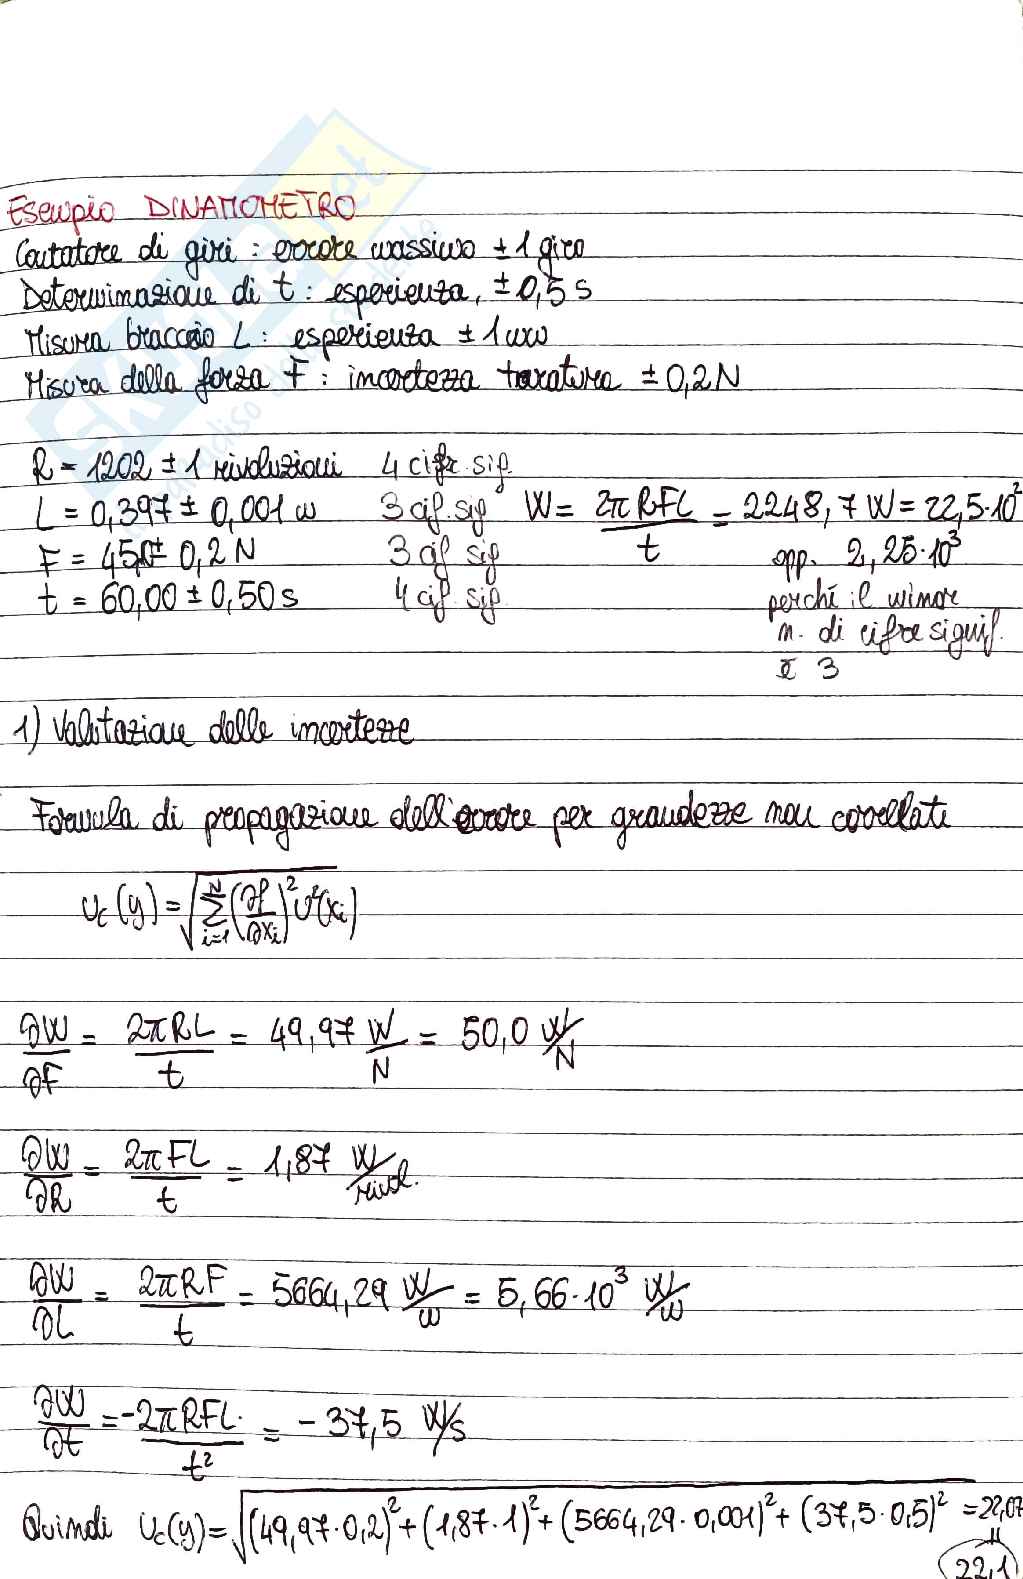 Esempio DINAMOMETRO
Contatore di giri : errore massimo ± 1 giro
Determinazione di t : esperienza, ± 0,5 s
Misura braccio L : esperienza ± 1 mm
Misura della forza F : incertezza taratura ± 0,2 N
R = 1202 ± 1 rivoluzioni 4 cifre sig.
L = 0,397 ± 0,001 m 3 cif. sig W = 2πRFL / t = 2248,7 W = 22,5·10²
F = 45,0 ± 0,2 N 3 cif sig opp. 2,25·10³
t = 60,00 ± 0,50 s 4 cif. sig. perché il minor
n. di cifre signif.
è 3
1) Valutazione delle incertezze
Formula di propagazione dell'errore per grandezze non correllati
Uc(y) = √∑ᵢ₌₁ᴺ (∂f/∂xi)² U²(xi)
∂W/∂F = 2πRL / t = 49,97 W/N = 50,0 W/N
∂W/∂R = 2πFL / t = 1,87 W/rivol.
∂W/∂L = 2πRF / t = 5664,29 W/m = 5,66·10³ W/m
∂W/∂t = -2πRFL / t² = -37,5 W/s
Quindi Uc(y) = √(49,97·0,2)² + (1,87·1)² + (5664,29·0,001)² + (37,5·0,5)² = 22,07
=
22,1